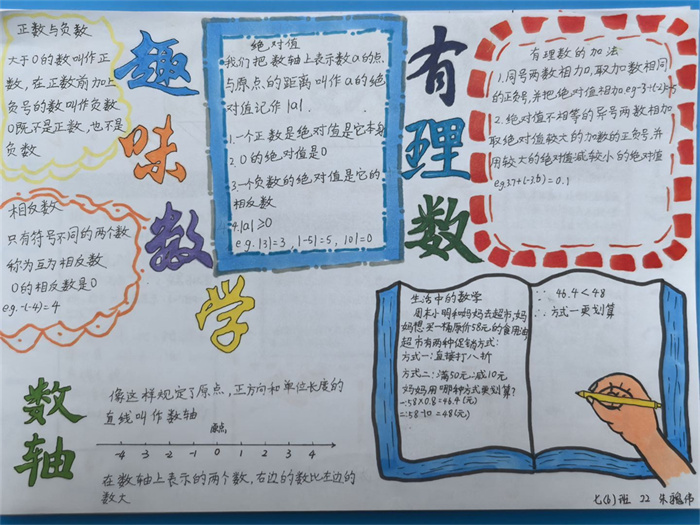 正数与负数
大于0的数叫作正
数，在正数前加上
负号的数叫作负数
0既不是正数，也不是
负数
趣味数学
绝对值
我们把数轴上表示数a的点
与原点的距离叫作a的绝
对值记作|a|.
1.一个正数是绝对值是它本身
2.0的绝对值是0
3.一个负数的绝对值是它的
相反数
4.|a|≥0
eg.|3|=3,|-5|=5,|0|=0
有理数
有理数的加法
1.同号两数相加,取加数相同
的正负号,并把绝对值相加
2.绝对值不相等的异号两数相加
取绝对值较大的加数的正负号,并
用较大的绝对值减较小的绝对值
相反数
只有符号不同的两个数
称为互为相反数
0的相反数是0
eg.-(-4)=4
生活中的数学
周末小明和妈妈去超市,妈
妈想买一桶原价58元的食用油
超市有两种促销方式:
方式一:直接打八折
方式二:满50元减10元
妈妈用哪种方式更划算?
58×0.8=46.4(元)
58-10=48(元)
∵ 46.4<48
∴ 方式一更划算
数轴
像这样规定了原点,正方向和单位长度的
直线叫作数轴
原点
-4 -3 -2 -1 0 1 2 3 4
在数轴上表示的两个数,右边的数比左边的
数大
七(6)班 22 朱